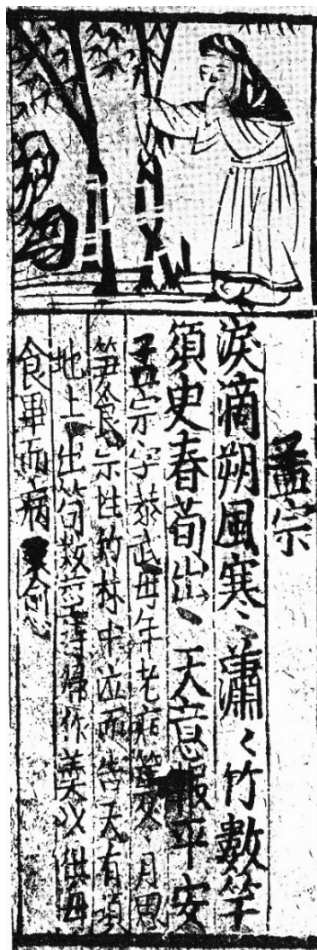 孟宗
淚滴朔風寒〻蕭〻竹數竿
須史春荀出〻天意報平安
孟宗字恭武母年老病篤月思
笋食宗往竹林中泣而告天有須
地上出笱数莖持歸作羹以供母
食畢而病愈